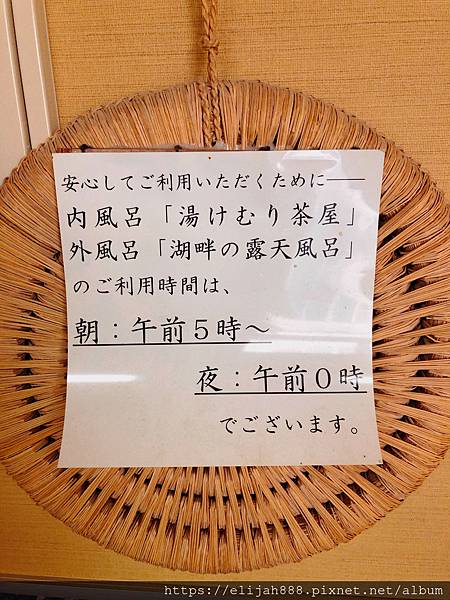 安心してご利用いただくために――
内風呂「湯けむり茶屋」
外風呂「湖畔の露天風呂」
のご利用時間は、
朝：午前５時～
夜：午前０時
でございます。
https://elijah888.pixnet.net/album